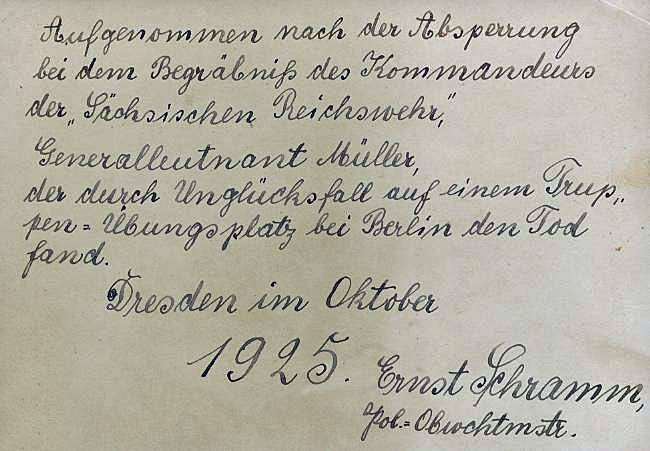 Aufgenommen nach der Absperrung
bei dem Begräbniß des Kommandeurs
der „Sächsischen Reichswehr,"
Generalleutnant Müller,
der durch Unglücksfall auf einem Trup„
pen=Übungsplatz bei Berlin den Tod
fand.
Dresden im Oktober
1925.
Ernst Schramm,
Pol.=Obwchtmstr.